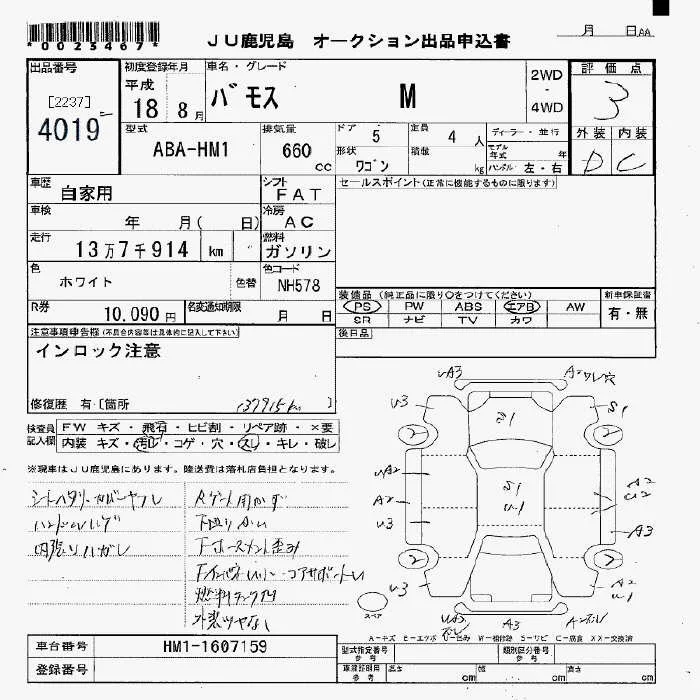 *0023467*
JU鹿児島 オークション出品申込書
月 日 AA
出品番号
初度登録年月
車名・グレード
2WD
-
4WD
評価点
[2237]
4019
平成
18 8月
バモス M
3
外装 内装
D C
型式
ABA-HM1
排気量
660 cc
ドア 5
定員 4 人
ディーラー・並行
形状 ワゴン
積載 kg
モデル年式 年
ハンドル 左・右
車歴
自家用
シフト
FAT
セールスポイント(正常に機能するものに限ります)
車検
年 月( 日)
冷房
AC
走行
13万7千914 km
燃料
ガソリン
色
ホワイト
色替
色コード
NH578
装備品(純正品に限り○をつけてください)
新車保証書
PS PW ABS エアB AW
有・無
SR ナビ TV カワ
R券
10,090円
名変通知期限
月 日
後日品
注意事項申告欄(不具合内容等は具体的に記入して下さい)
インロック注意
修復歴 有・[箇所
137915km ]
検査員記入欄
FW キズ・飛石・ヒビ割・リペア跡・×要
内装 キズ・汚れ・コゲ・穴・スレ・キレ・破レ
※現車はJU鹿児島にあります。陸送費は落札店負担となります。
内張りハガレ
Rゲート内かず
下廻りサビ
外装ツヤなし
UA3
A2ワレ穴
U3
S1
S1
2
2
UA2
A2
U3
S1
U1
A2
U2
A3
2
2
U3
A2
U1
A3
スペア
A-キズ E-エクボ U-凹み W-補修跡 S-サビ C-腐食 XX-交換済
車台番号
HM1-1607159
登録番号
型式指定番号
参考
類別区分番号
参考
車両諸別用
参考
長さ cm
幅 cm
高さ cm